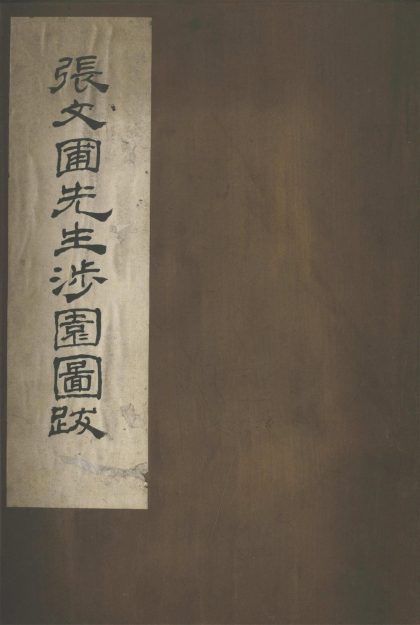 張文圃先生涉園圖跋